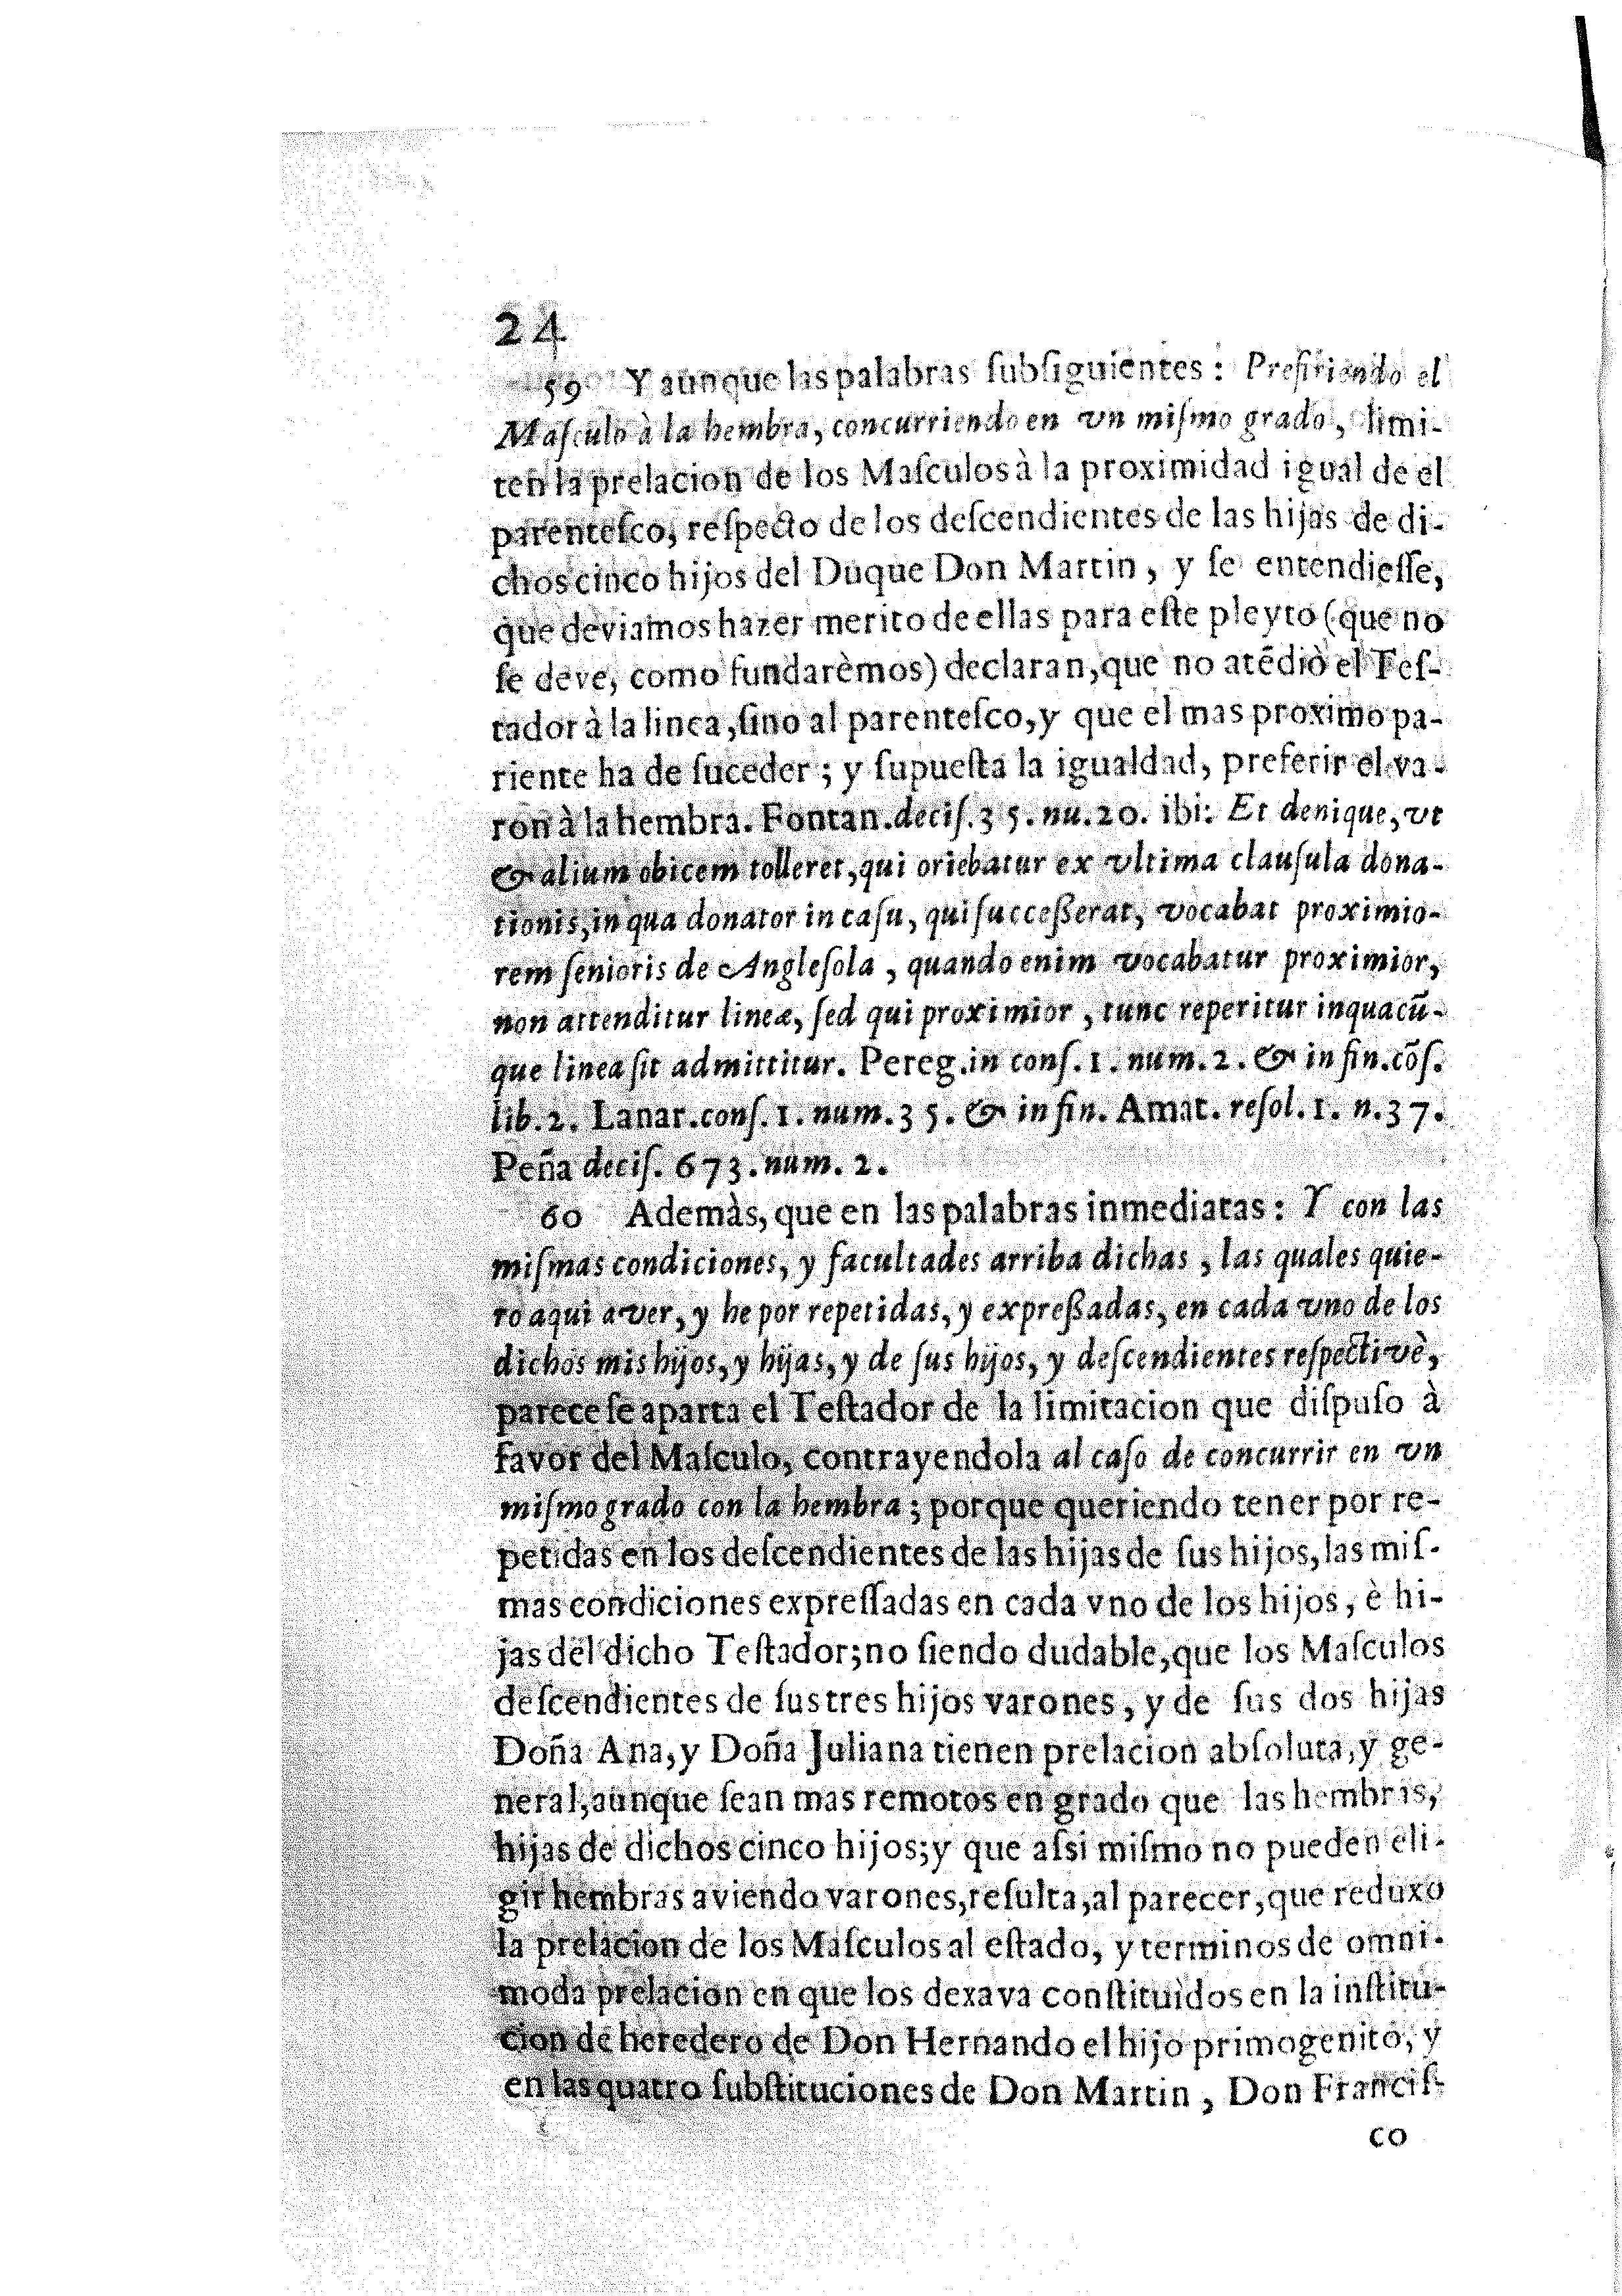 24
59 Y aunque las palabras ſubſiguientes: Prefiriendo el
Maſculo à la hembra, concurriendo en vn miſmo grado, limi-
ten la prelacion de los Maſculos à la proximidad igual de el
parenteſco, reſpecto de los deſcendientes de las hijas de di-
chos cinco hijos del Duque Don Martin, y ſe entendieſſe,
que deviamos hazer merito de ellas para eſte pleyto (que no
ſe deve, como fundarèmos) declaran, que no atēdiò el Teſ-
tador à la linea, ſino al parenteſco, y que el mas proximo pa-
riente ha de ſuceder; y ſupueſta la igualdad, preferir el va-
ron à la hembra. Fontan. deciſ. 35. nu. 20. ibi: Et denique, vt
& alium obicem tolleret, qui oriebatur ex vltima clauſula dona-
tionis, in qua donator in caſu, qui ſucceſſerat, vocabat proximio-
rem ſenioris de Angleſola, quando enim vocabatur proximior,
non attenditur lineæ, ſed qui proximior, tunc reperitur in quacū-
que linea ſit admittitur. Pereg. in conſ. 1. num. 2. & in fin. cōſ.
lib. 2. Lanar. conſ. 1. num. 35. & in fin. Amat. reſol. 1. n. 37.
Peña deciſ. 673. num. 2.
60 Ademàs, que en las palabras inmediatas: Y con las
miſmas condiciones, y facultades arriba dichas, las quales quie-
ro aqui aver, y he por repetidas, y expreſſadas, en cada vno de los
dichos mis hijos, y hijas, y de ſus hijos, y deſcendientes reſpectivè,
parece ſe aparta el Teſtador de la limitacion que diſpuſo à
favor del Maſculo, contrayendola al caſo de concurrir en vn
miſmo grado con la hembra; porque queriendo tener por re-
petidas en los deſcendientes de las hijas de ſus hijos, las miſ-
mas condiciones expreſſadas en cada vno de los hijos, è hi-
jas del dicho Teſtador; no ſiendo dudable, que los Maſculos
deſcendientes de ſus tres hijos varones, y de ſus dos hijas
Doña Ana, y Doña Juliana tienen prelacion abſoluta, y ge-
neral, aunque ſean mas remotos en grado que las hembras,
hijas de dichos cinco hijos; y que aſsi miſmo no pueden eli-
gir hembras aviendo varones, reſulta, al parecer, que reduxo
la prelacion de los Maſculos al eſtado, y terminos de omni-
moda prelacion en que los dexava conſtituìdos en la inſtitu-
cion de heredero de Don Hernando el hijo primogenito, y
en las quatro ſubſtituciones de Don Martin, Don Franciſ-
co